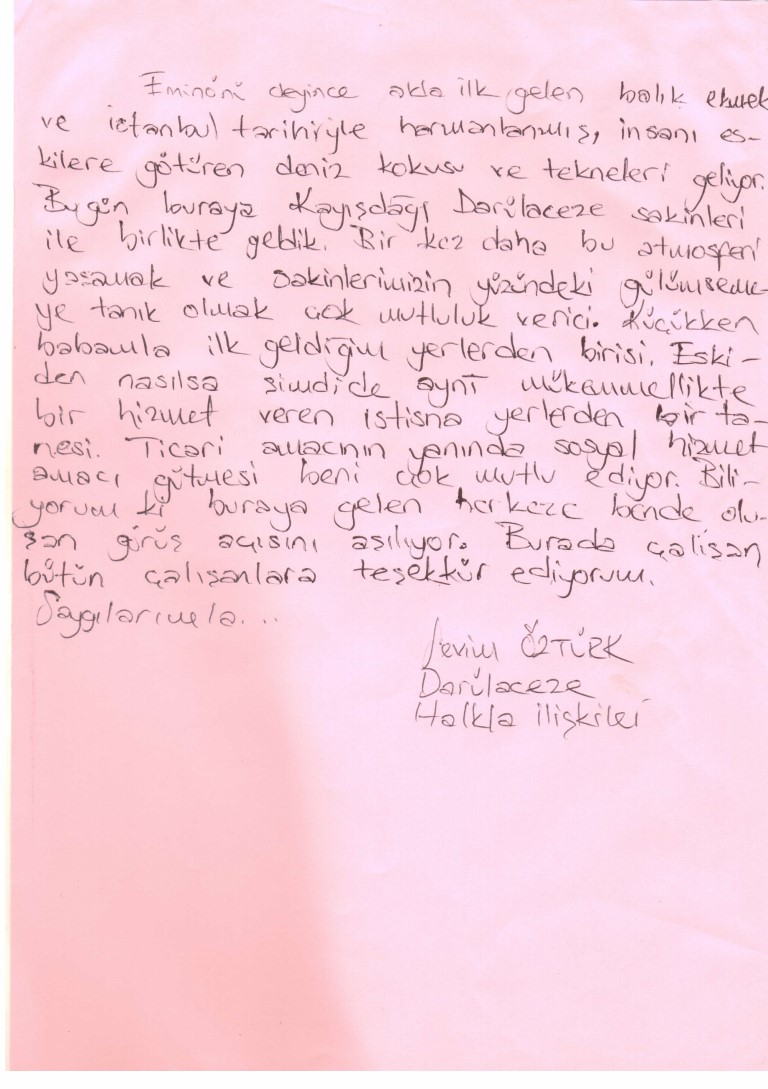 Eminönü deyince akla ilk gelen balık ekmek
ve istanbul tarihiyle harmanlanmış, insanı es-
kilere götüren deniz kokusu ve tekneleri geliyor.
Bugün buraya Kayışdağı Darülaceze sakinleri
ile birlikte geldik. Bir kez daha bu atmosferi
yaşamak ve sakinlerimizin yüzündeki gülümseme-
ye tanık olmak çok mutluluk verici. Küçükken
babamla ilk geldiğim yerlerden birisi. Eski-
den nasılsa şimdide aynı mükemmellikte
bir hizmet veren istisna yerlerden bir ta-
nesi. Ticari amacının yanında sosyal hizmet
amacı gütmesi beni çok mutlu ediyor. Bili-
yorum ki buraya gelen herkeze bende olu-
şan görüş açısını aşılıyor. Burada çalışan
bütün çalışanlara teşekkür ediyorum.
Saygılarımla...
Sevim ÖZTÜRK
Darülaceze
Halkla ilişkileri